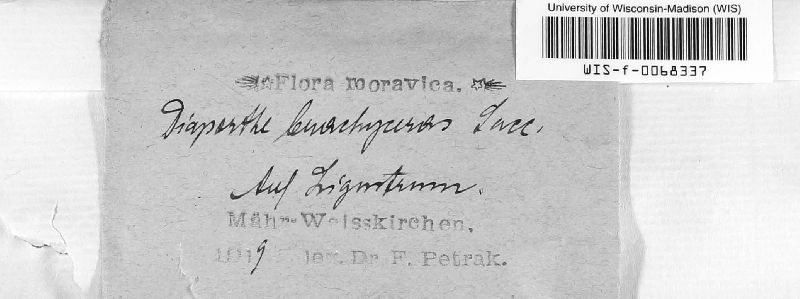 University of Wisconsin-Madison (WIS)
WIS-f-0068337
Flora moravica.
Diaporthe brachyceras Sacc.
Auf Ligustrum.
Mähr-Weisskirchen,
1919 leg. Dr. F. Petrak.